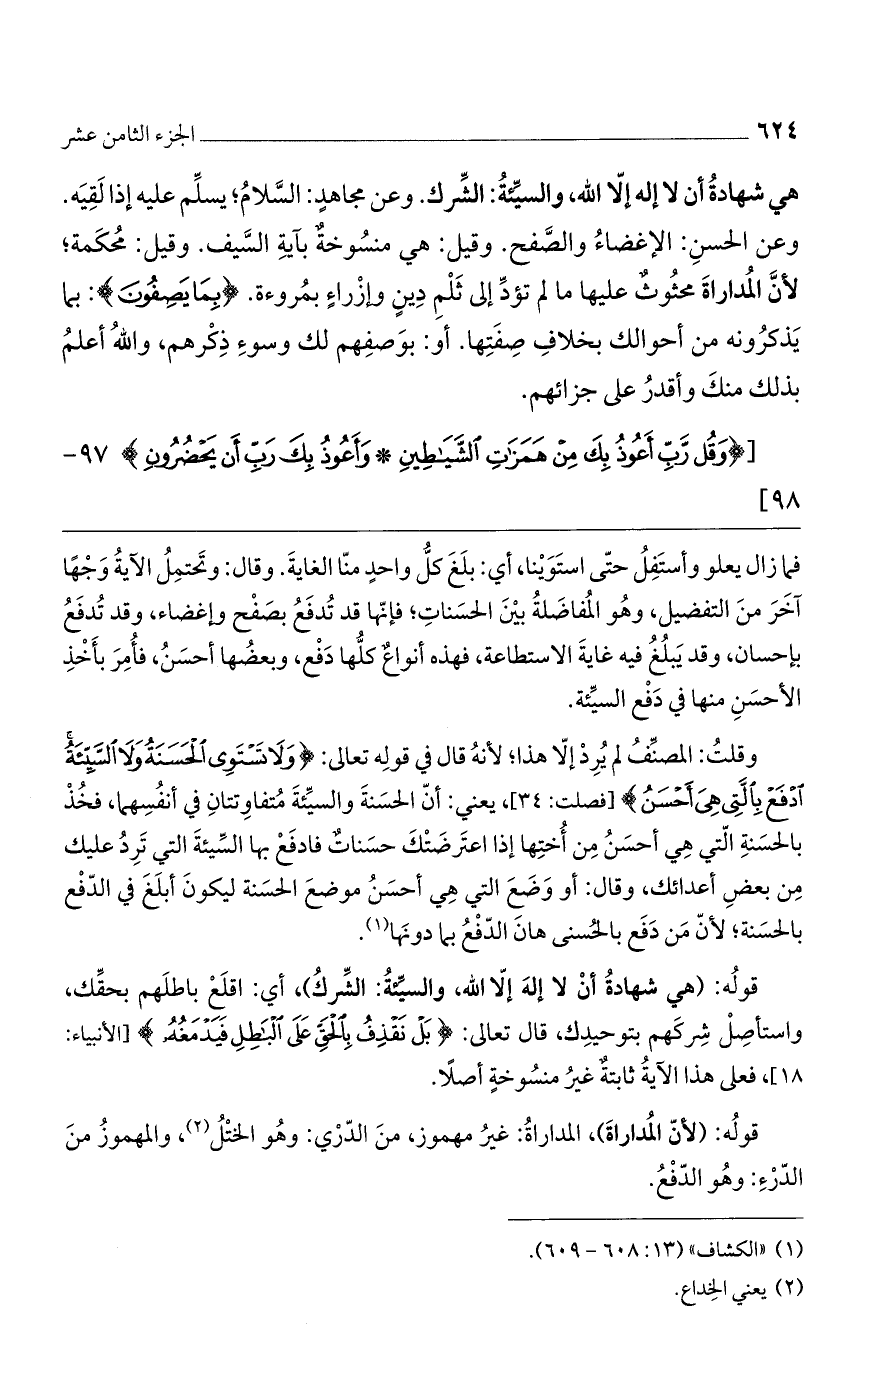 ٦٢٤ الجزء الثامن عشر
هي شهادةُ أن لا إله إلّا الله، والسيِّئةُ: الشِّرك. وعن مجاهدٍ: السَّلامُ؛ يسلِّم عليه إذا لَقِيَه.
وعن الحسنِ: الإغضاءُ والصَّفح. وقيل: هي منسُوخةٌ بآيةِ السَّيف. وقيل: مُحكَمة؛
لأنَّ المُداراةَ محثُوثٌ عليها ما لم تؤدِّ إلى ثَلْمِ دِينٍ وإزْراءٍ بمُروءة. ﴿بِمَا يَصِفُونَ﴾: بما
يَذكرُونه من أحوالك بخلافِ صِفَتِها. أو: بوَصفِهم لك وسوءِ ذِكْرهم، واللهُ أعلمُ
بذلك منكَ وأقدرُ على جزائهم.
[﴿وَقُل رَّبِّ أَعُوذُ بِكَ مِنْ هَمَزَاتِ ٱلشَّيَـٰطِينِ * وَأَعُوذُ بِكَ رَبِّ أَن يَحْضُرُونِ﴾ ٩٧-
٩٨]
فما زال يعلو وأستَفِلُ حتّى استَوَيْنا، أي: بلَغَ كلُّ واحدٍ منّا الغايةَ. وقال: وتَحتمِلُ الآيةُ وَجْهًا
آخَرَ منَ التفضيل، وهُو المُفاضَلةُ بيْنَ الحسَناتِ؛ فإنّها قد تُدفَعُ بصَفْح وإغضاء، وقد تُدفَعُ
بإحسان، وقد يَبلُغُ فيه غايةَ الاستطاعة، فهذه أنواعٌ كلُّها دَفْع، وبعضُها أحسَنُ، فأُمِرَ بأَخْذِ
الأحسَنِ منها في دَفْع السيِّئة.
وقلتُ: المصنِّفُ لم يُرِدْ إلّا هذا؛ لأنهُ قال في قولِه تعالى: ﴿وَلَا تَسْتَوِى ٱلْحَسَنَةُ وَلَا ٱلسَّيِّئَةُ ۚ
ٱدْفَعْ بِٱلَّتِى هِىَ أَحْسَنُ﴾ [فصلت: ٣٤]، يعني: أنّ الحسَنةَ والسيِّئةَ مُتفاوِتتانِ في أنفُسِهما، فخُذْ
بالحسَنةِ الّتي هِي أحسَنُ مِن أُختِها إذا اعترَضَتْكَ حسَناتٌ فادفَعْ بها السِّيئةَ التي تَرِدُ عليك
مِن بعضِ أعدائك، وقال: أو وَضَعَ التي هِي أحسَنُ موضعَ الحسَنة ليكونَ أبلَغَ في الدّفْع
بالحسَنة؛ لأنّ مَن دَفَع بالحُسنى هانَ الدّفْعُ بما دونَها(١).
قولُه: (هي شهادةُ أنْ لا إلهَ إلّا الله، والسيِّئةُ: الشِّركُ)، أي: اقلَعْ باطلَهم بحقِّك،
واستأصِلْ شِركَهم بتوحيدِك، قال تعالى: ﴿بَلْ نَقْذِفُ بِٱلْحَقِّ عَلَى ٱلْبَـٰطِلِ فَيَدْمَغُهُۥ﴾ [الأنبياء:
١٨]، فعلى هذا الآيةُ ثابتةٌ غيرُ منسُوخةٍ أصلًا.
قولُه: (لأنّ المُداراةَ)، المداراةُ: غيرُ مهموز، منَ الدّرْي: وهُو الخَتْلُ(٢)، والمهموزُ منَ
الدّرْءِ: وهُو الدّفْعُ.
(١) «الكشاف» (١٣: ٦٠٨ - ٦٠٩).
(٢) يعني الخِداع.